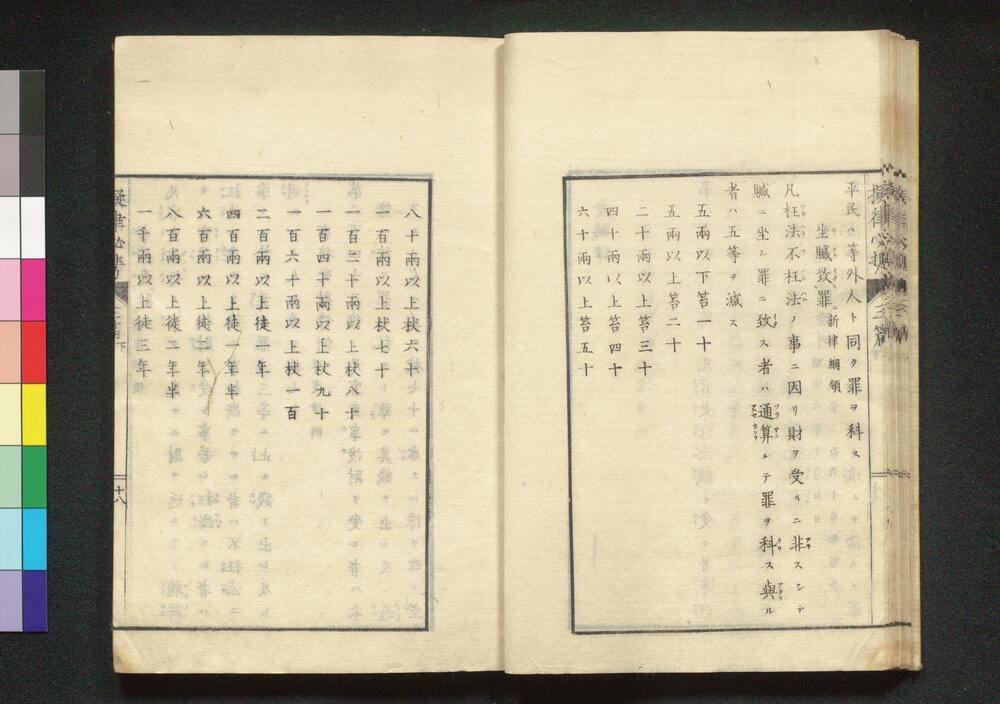 平民ハ等外人ト同ク罪ヲ科ス
坐贓致罪 新律綱領
凡枉法不枉法ノ事ニ因リ財ヲ受ルニ非スシテ
贓ニ坐シ罪ニ致ス者ハ通算シテ罪ヲ科ス與ル
者ハ五等ヲ減ス
五兩以下笞一十
五兩以上笞二十
二十兩以上笞三十
四十兩以上笞四十
六十兩以上笞五十
八十兩以上杖六十
一百兩以上杖七十
一百二十兩以上杖八十
一百四十兩以上杖九十
一百六十兩以上杖一百
二百兩以上徒一年
四百兩以上徒一年半
六百兩以上徒二年
八百兩以上徒二年半
一千兩以上徒三年
十八